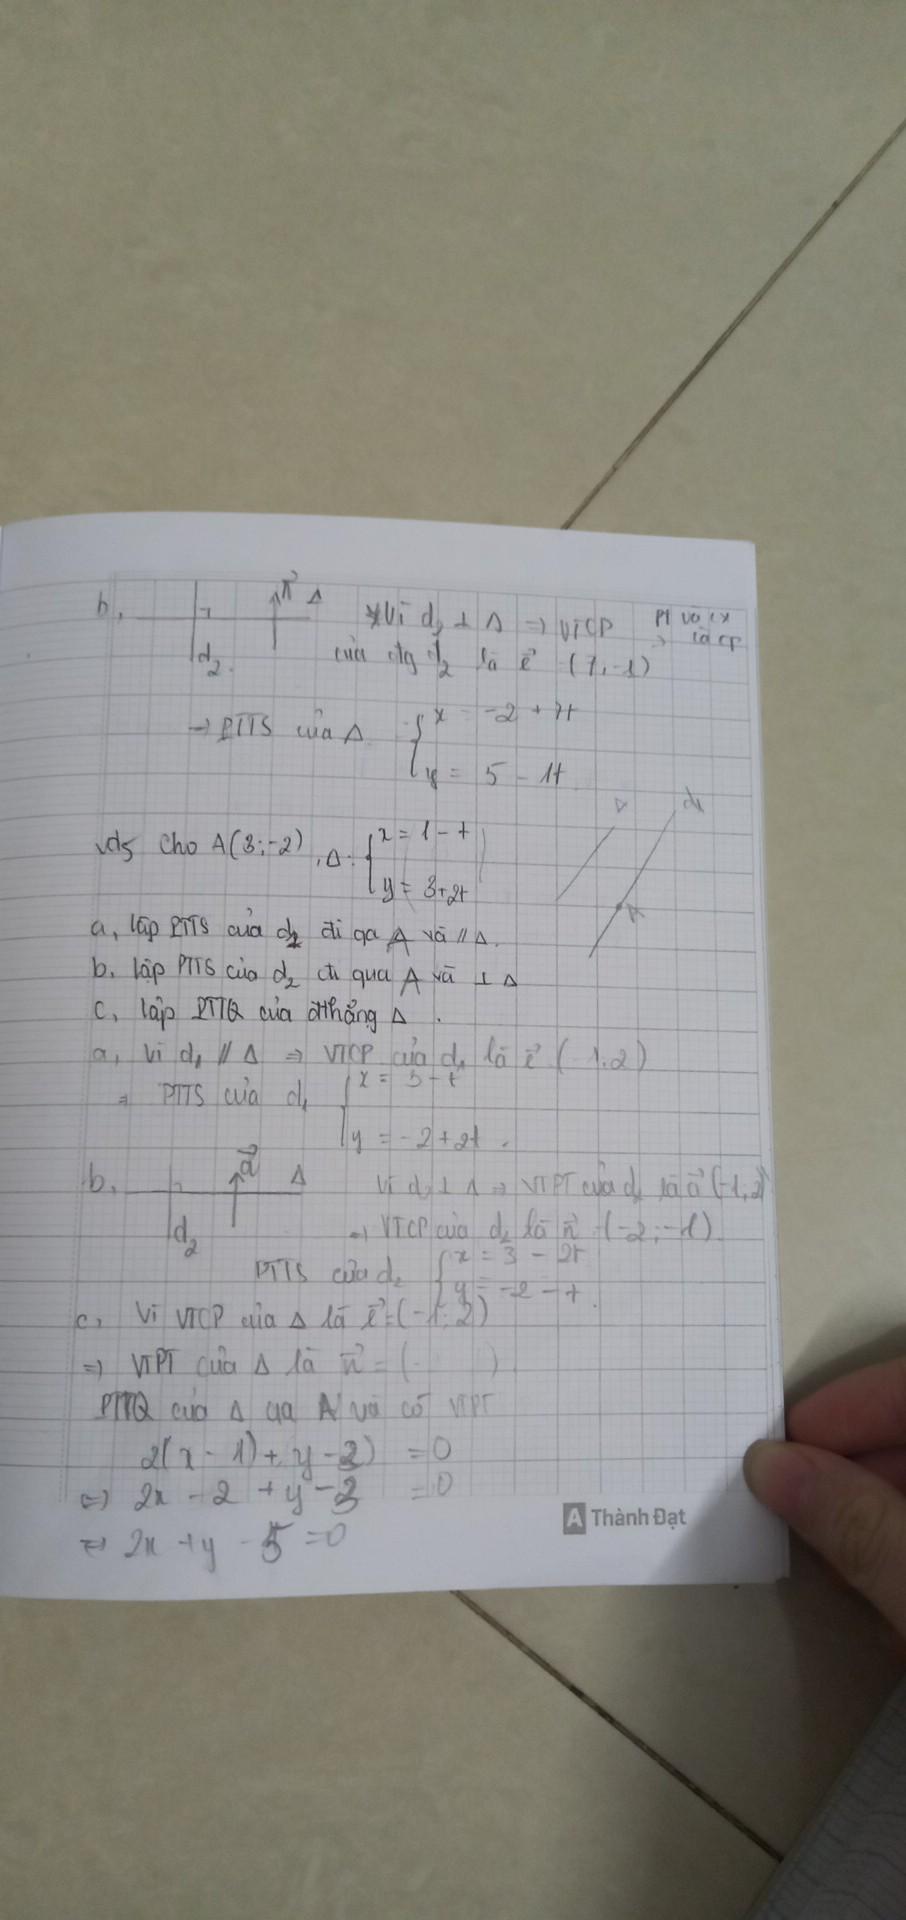 b, n⃗ Δ *Vì d₂ ⊥ Δ ⇒ VTCP PT
d₂. của đtg d₂ là e⃗ (7;-1) là CP
→ PTTS của Δ { x = -2 + 7t
y = 5 - 1t
Vd5 Cho A(3;-2), Δ: { x = 1 - t
y = 3+2t
Δ d₁
A
a, lập PTTS của d₂ đi qa A và // Δ.
b. lập PTTS của d₂ đi qua A và ⊥ Δ
c, lập PTTQ của đthẳng Δ.
a, Vì d₁ // Δ ⇒ VTCP của d₁ là e⃗ (-1;2)
⇒ PTTS của d₁ { x = 3 - t
y = -2 + 2t.
b. a⃗ Δ Vì d₂ ⊥ Δ ⇒ VTPT của d₂ là a⃗ (-1;2)
d₂ ⇒ VTCP của d₂ là n⃗ (-2;-1)
PTTS của d₂ { x = 3 - 2t
y = -2 - t.
c, Vì VTCP của Δ là e⃗ = (-1;2)
⇒ VTPT của Δ là n⃗ = ( )
PTTQ của Δ qa A và có VTPT
2(x - 1) + y - 3) = 0
⇔ 2x - 2 + y - 3 = 0
⇔ 2x + y - 5 = 0
A Thành Đạt